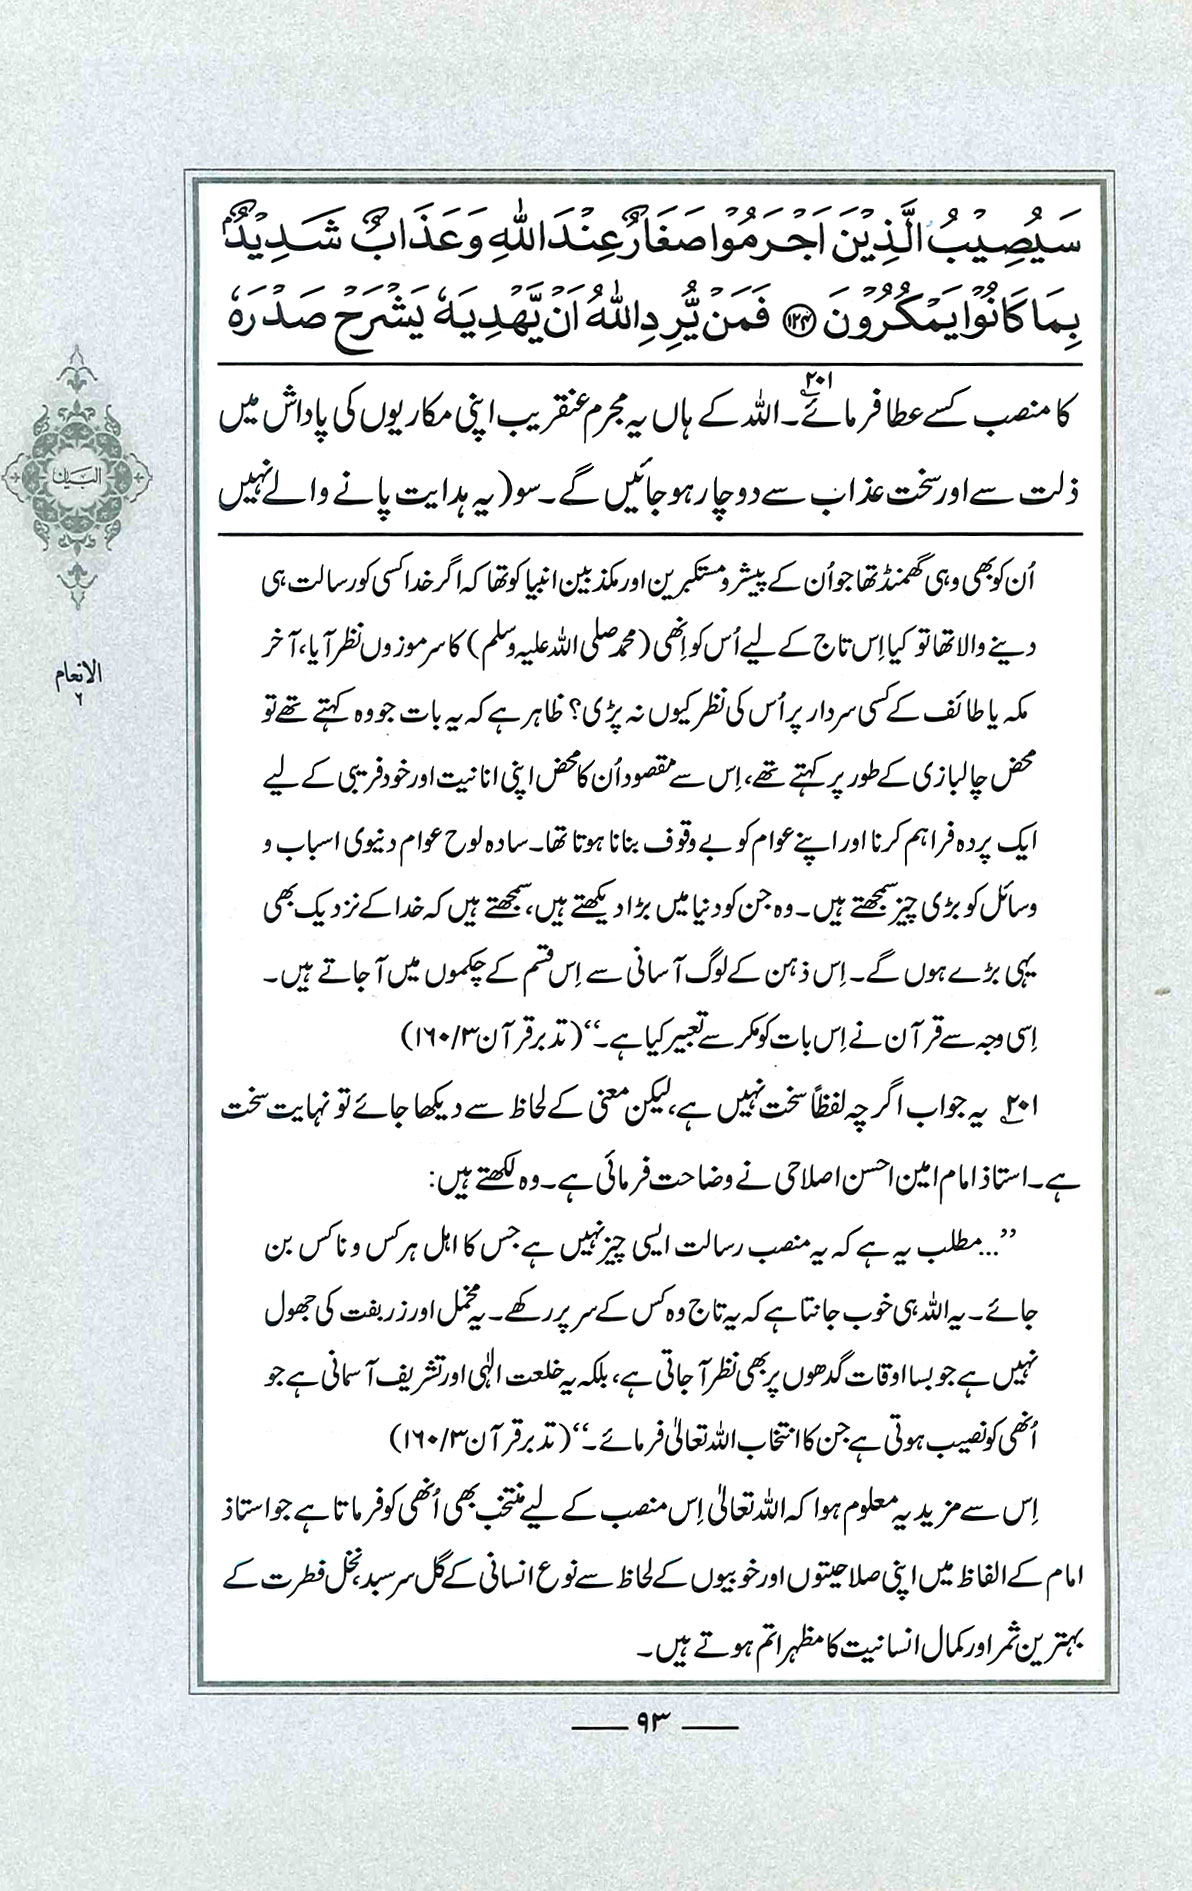 سَيُصِيْبُ الَّذِيْنَ اَجْرَمُوْا صَغَارٌ عِنْدَ اللّٰهِ وَعَذَابٌ شَدِيْدٌۢ
بِمَا كَانُوْا يَمْكُرُوْنَ ﴿۱۲۴﴾ فَمَنْ يُّرِدِ اللّٰهُ اَنْ يَّهْدِيَهٗ يَشْرَحْ صَدْرَهٗ
کا منصب کسے عطا فرمائے۔۲۰۱ اللہ کے ہاں یہ مجرم عنقریب اپنی مکاریوں کی پاداش میں
ذلت سے اور سخت عذاب سے دوچار ہو جائیں گے۔ سو (یہ ہدایت پانے والے نہیں
اُن کو بھی وہی گھمنڈ تھا جو اُن کے پیشرو مستکبرین اور مکذبین انبیا کو تھا کہ اگر خدا کسی کو رسالت ہی
دینے والا تھا تو کیا اِس تاج کے لیے اُس کو اِنھی (محمد صلی اللہ علیہ وسلم) کا سر موزوں نظر آیا، آخر
مکہ یا طائف کے کسی سردار پر اُس کی نظر کیوں نہ پڑی؟ ظاہر ہے کہ یہ بات جو وہ کہتے تھے تو
محض چالبازی کے طور پر کہتے تھے، اِس سے مقصود اُن کا محض اپنی انانیت اور خود فریبی کے لیے
ایک پردہ فراہم کرنا اور اپنے عوام کو بے وقوف بنانا ہوتا تھا۔ سادہ لوح عوام دنیوی اسباب و
وسائل کو بڑی چیز سمجھتے ہیں۔ وہ جن کو دنیا میں بڑا دیکھتے ہیں، سمجھتے ہیں کہ خدا کے نزدیک بھی
یہی بڑے ہوں گے۔ اِس ذہن کے لوگ آسانی سے اِس قسم کے چکموں میں آ جاتے ہیں۔
اِسی وجہ سے قرآن نے اِس بات کو مکر سے تعبیر کیا ہے۔‘‘ (تدبر قرآن ۳/۱۶۰)
۲۰۱ یہ جواب اگرچہ لفظاً سخت نہیں ہے، لیکن معنی کے لحاظ سے دیکھا جائے تو نہایت سخت
ہے۔ استاذ امام امین احسن اصلاحی نے وضاحت فرمائی ہے۔ وہ لکھتے ہیں:
’’...مطلب یہ ہے کہ یہ منصب رسالت ایسی چیز نہیں ہے جس کا اہل ہر کس و ناکس بن
جائے۔ یہ اللہ ہی خوب جانتا ہے کہ یہ تاج وہ کس کے سر پر رکھے۔ یہ مخمل اور زربفت کی جھول
نہیں ہے جو بسا اوقات گدھوں پر بھی نظر آ جاتی ہے، بلکہ یہ خلعت الٰہی اور تشریف آسمانی ہے جو
اُنھی کو نصیب ہوتی ہے جن کا انتخاب اللہ تعالیٰ فرمائے۔‘‘ (تدبر قرآن ۳/۱۶۰)
اِس سے مزید یہ معلوم ہوا کہ اللہ تعالیٰ اِس منصب کے لیے منتخب بھی اُنھی کو فرماتا ہے جو استاذ
امام کے الفاظ میں اپنی صلاحیتوں اور خوبیوں کے لحاظ سے نوع انسانی کے گل سرسبد، نخل فطرت کے
بہترین ثمر اور کمال انسانیت کا مظہر اتم ہوتے ہیں۔
البیان
الانعام
۶
۹۳